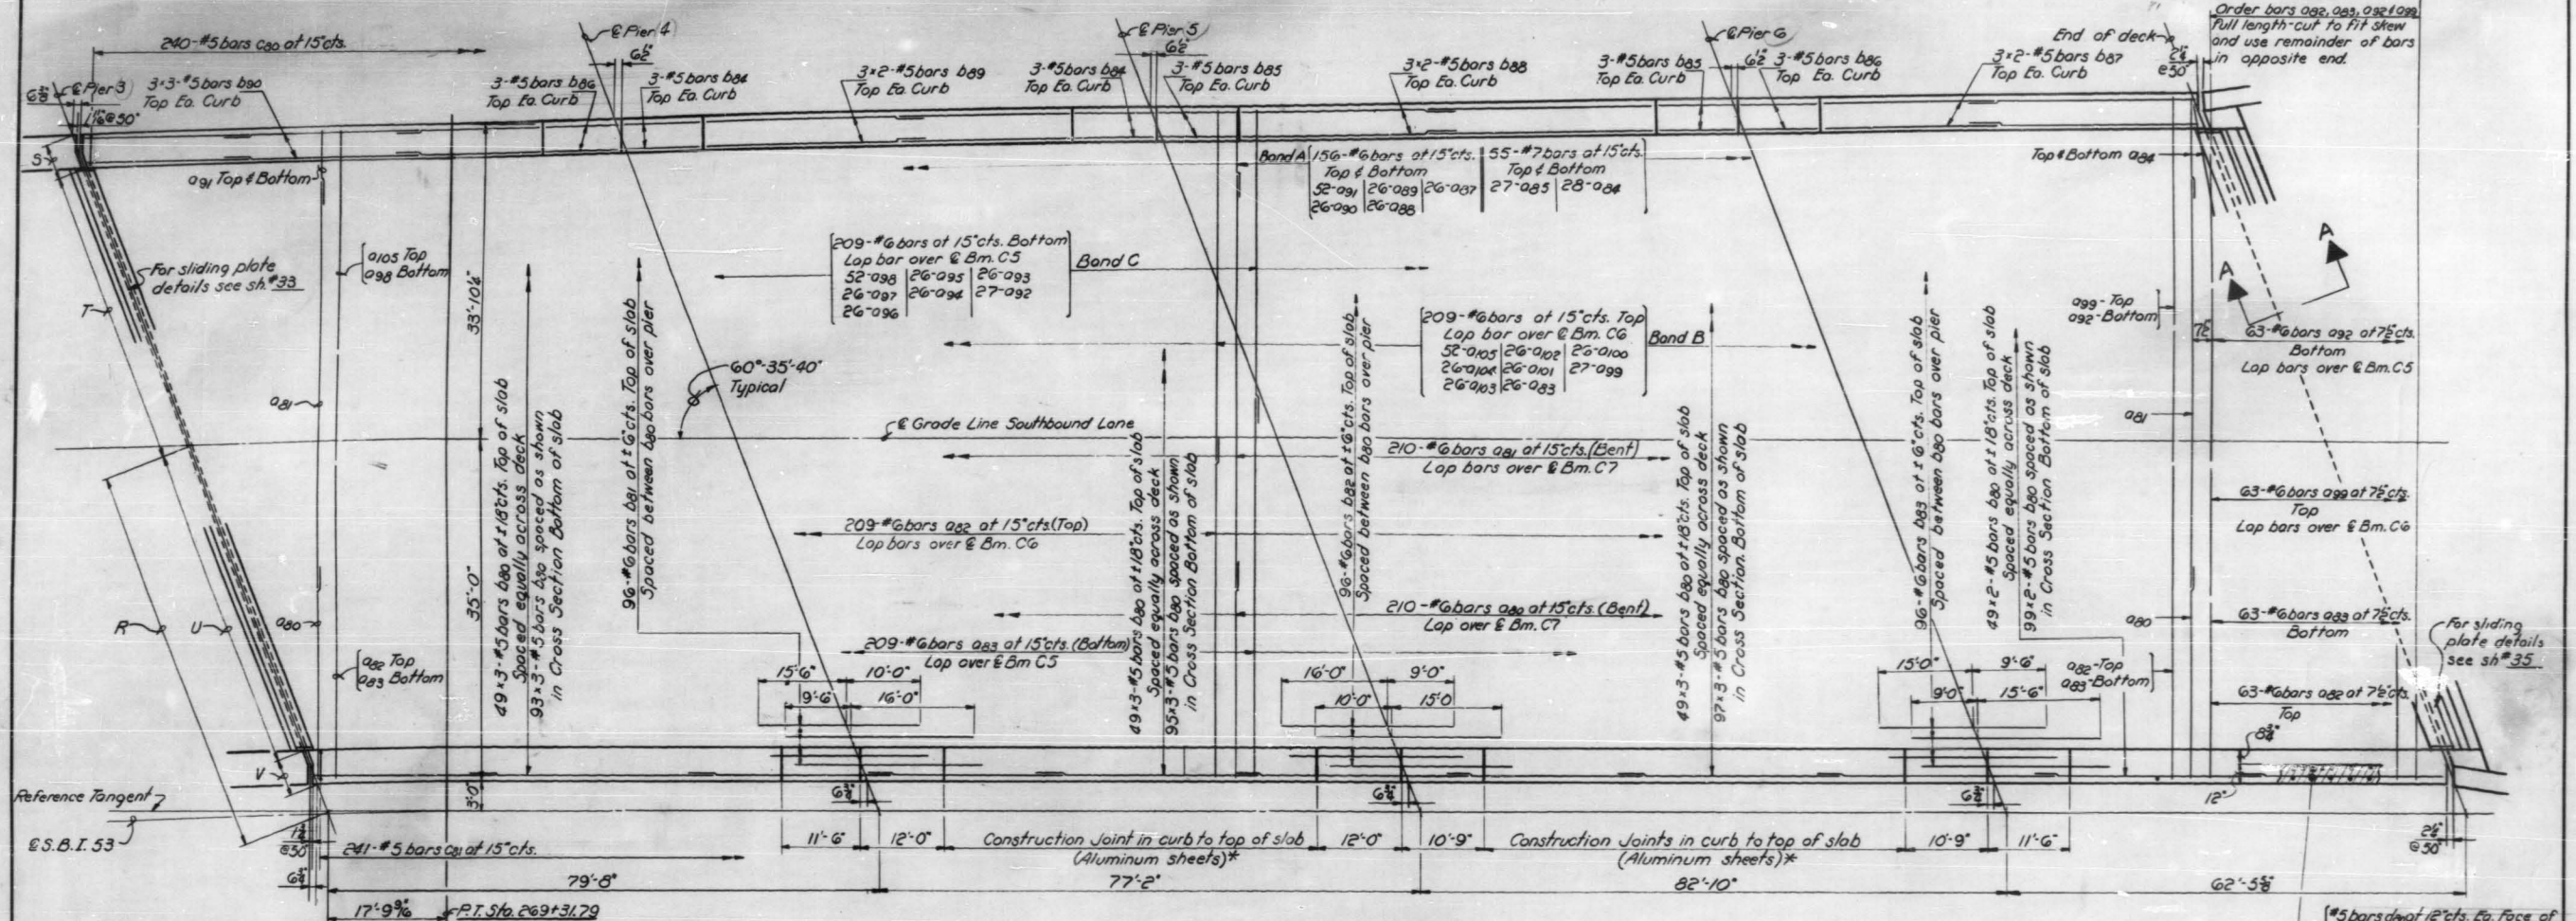 240-#5 bars c80 at 15"cts.
℄ Pier 4
6½"
℄ Pier 5
6½"
℄ Pier 6
6½"
End of deck
2¼"
@50°
Order bars a82, a83, a92 & a99
full length-cut to fit skew
and use remainder of bars
in opposite end.
℄ Pier 3
3×3-#5 bars b90
Top Ea. Curb
3-#5 bars b86
Top Ea. Curb
3-#5 bars b84
Top Ea. Curb
3×2-#5 bars b89
Top Ea. Curb
3-#5 bars b84
Top Ea. Curb
3-#5 bars b85
Top Ea. Curb
3×2-#5 bars b88
Top Ea. Curb
3-#5 bars b85
Top Ea. Curb
3-#5 bars b86
Top Ea. Curb
3×2-#5 bars b87
Top Ea. Curb
S
a91 Top & Bottom
Band A
156-#6 bars at 15"cts.
Top & Bottom
52-a91 26-a89 26-a87
26-a90 26-a88
55-#7 bars at 15"cts.
Top & Bottom
27-a85 28-a84
Top & Bottom a84
For sliding plate
details see sh.#33
T
a105 Top
a98 Bottom
33'-10½"
209-#6 bars at 15"cts. Bottom
Lap bar over ℄ Bm. C5
52-a98 26-a95 26-a93
26-a97 26-a94 27-a92
26-a96
Band C
209-#6 bars at 15"cts. Top
Lap bar over ℄ Bm. C6
52-a105 26-a102 26-a100
26-a104 26-a101 27-a99
26-a103 26-a83
Band B
A
A
a99-Top
a92-Bottom
7½"
63-#6 bars a92 at 7½"cts.
Bottom
Lap bars over ℄ Bm. C5
60°-35'-40"
Typical
a81
a81
℄ Grade Line Southbound Lane
49×3-#5 bars b80 at ±18"cts. Top of slab
Spaced equally across deck
93×3-#5 bars b80 spaced as shown
in Cross Section Bottom of slab
96-#6 bars b81 at ±6"cts. Top of slab
Spaced between b80 bars over pier
49×3-#5 bars b80 at ±18"cts. Top of slab
Spaced equally across deck
95×3-#5 bars b80 spaced as shown
in Cross Section Bottom of slab
96-#6 bars b82 at ±6"cts. Top of slab
Spaced between b80 bars over pier
49×3-#5 bars b80 at ±18"cts. Top of slab
Spaced equally across deck
97×3-#5 bars b80 spaced as shown
in Cross Section. Bottom of slab
96-#6 bars b83 at ±6"cts. Top of slab
Spaced between b80 bars over pier
49×2-#5 bars b80 at ±18"cts. Top of slab
Spaced equally across deck
99×2-#5 bars b80 spaced as shown
in Cross Section Bottom of slab
210-#6 bars a81 at 15"cts. (Bent)
Lap bars over ℄ Bm. C7
63-#6 bars a99 at 7½"cts.
Top
Lap bars over ℄ Bm. C6
209-#6 bars a82 at 15"cts (Top)
Lap bars over ℄ Bm. C6
35'-0"
R
U
a80
210-#6 bars a80 at 15"cts. (Bent)
Lap over ℄ Bm. C7
a80
63-#6 bars a83 at 7½"cts.
Bottom
209-#6 bars a83 at 15"cts. (Bottom)
Lap over ℄ Bm C5
For sliding
plate details
see sh#35
a82 Top
a83 Bottom
15'-6"
10'-0"
9'-6"
16'-0"
16'-0"
9'-0"
10'-0"
15'-0
15'-0"
9'-6"
9'-0"
15'-6"
a82-Top
a83-Bottom
63-#6 bars a82 at 7½"cts.
Top
8¾"
V
Reference Tangent
℄ S.B.I. 53
3'-0"
6¾"
6¾"
6¾"
12"
1½"
@50°
241-#5 bars c81 at 15"cts.
11'-6"
12'-0"
Construction Joint in curb to top of slab
(Aluminum sheets)*
12'-0"
10'-9"
Construction Joints in curb to top of slab
(Aluminum sheets)*
10'-9"
11'-6"
@50°
79'-8"
77'-2"
82'-10"
62'-5⅝"
17'-9 9/16"
P.T. Sta. 269+31.79
at 12"cts. Ea. Face of